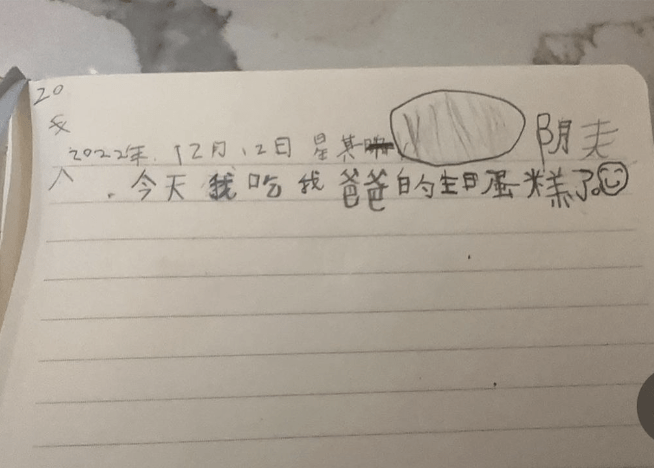 20
2022年.12月12日 星其 阴天
人.今天我吃我爸爸的生日蛋糕了。